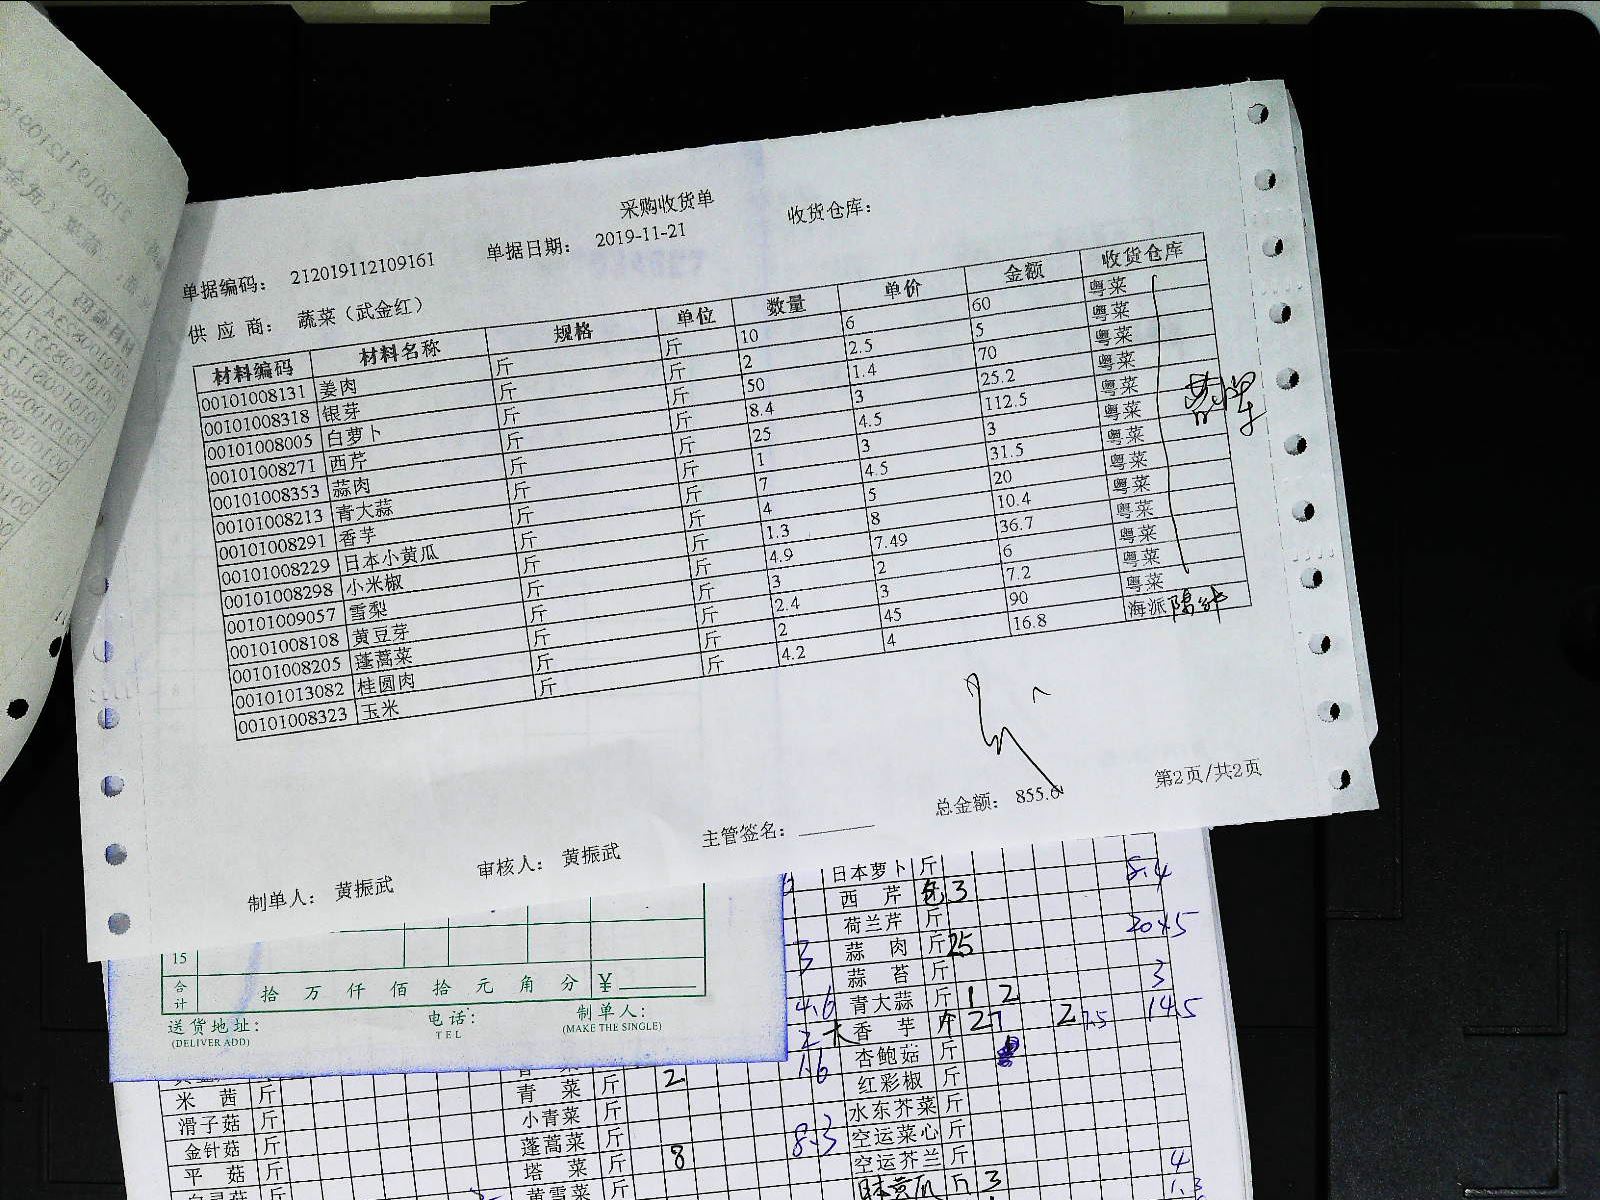 采购收货单
单据编码: 212019112109161 单据日期: 2019-11-21 收货仓库:
供 应 商: 蔬菜（武金红）
材料编码 材料名称 规格 单位 数量 单价 金额 收货仓库
00101008131 姜肉 斤 斤 10 6 60 粤菜
00101008318 银芽 斤 斤 2 2.5 5 粤菜
00101008005 白萝卜 斤 斤 50 1.4 70 粤菜
00101008271 西芹 斤 斤 8.4 3 25.2 粤菜
00101008353 蒜肉 斤 斤 25 4.5 112.5 粤菜
00101008213 青大蒜 斤 斤 1 3 3 粤菜
00101008291 香芋 斤 斤 7 4.5 31.5 粤菜
00101008229 日本小黄瓜 斤 斤 4 5 20 粤菜
00101008298 小米椒 斤 斤 1.3 8 10.4 粤菜
00101009057 雪梨 斤 斤 4.9 7.49 36.7 粤菜
00101008108 黄豆芽 斤 斤 3 2 6 粤菜
00101008205 蓬蒿菜 斤 斤 2.4 3 7.2 粤菜
00101013082 桂圆肉 斤 斤 2 45 90 粤菜
00101008323 玉米 斤 斤 4.2 4 16.8 海派
制单人: 黄振武 审核人: 黄振武 主管签名: 总金额: 855.6 第2页/共2页
15
合计 拾 万 仟 佰 拾 元 角 分 ¥
送货地址: 电话: 制单人:
(DELIVER ADD) TEL (MAKE THE SINGLE)
日本萝卜 斤 8.4
西 芹 3
荷兰芹 斤
蒜 肉 斤 25
蒜 苔 斤 3
青大蒜 斤 1 2 14.5
香 芋 斤
杏鲍菇 斤
红彩椒 斤
水东芥菜 斤
空运菜心 斤
空运芥兰 斤 4
斤 3 1.3
米 茜 斤 青 菜 斤 2
滑子菇 斤 小青菜 斤
金针菇 斤 蓬蒿菜 斤 8.3
平 菇 斤 塔 菜 斤 8
黄雪菜 斤